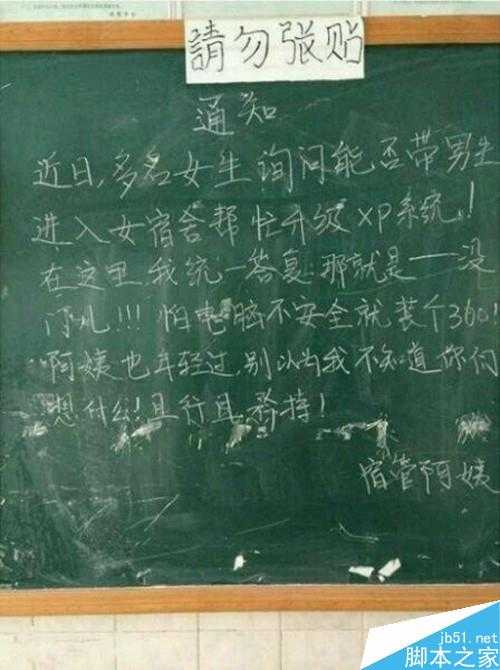 請勿张贴
通知
近日,多名女生询问能否带男生
进入女宿舍帮忙升级xp系统,!
在这里我统一答复.那就是一没
门儿!!!怕电脑不安全就装个360!
啊姨也年轻过,别以为我不知道你们
想什么!且行且矜持!
宿管阿姨
jb51.net
脚本之家